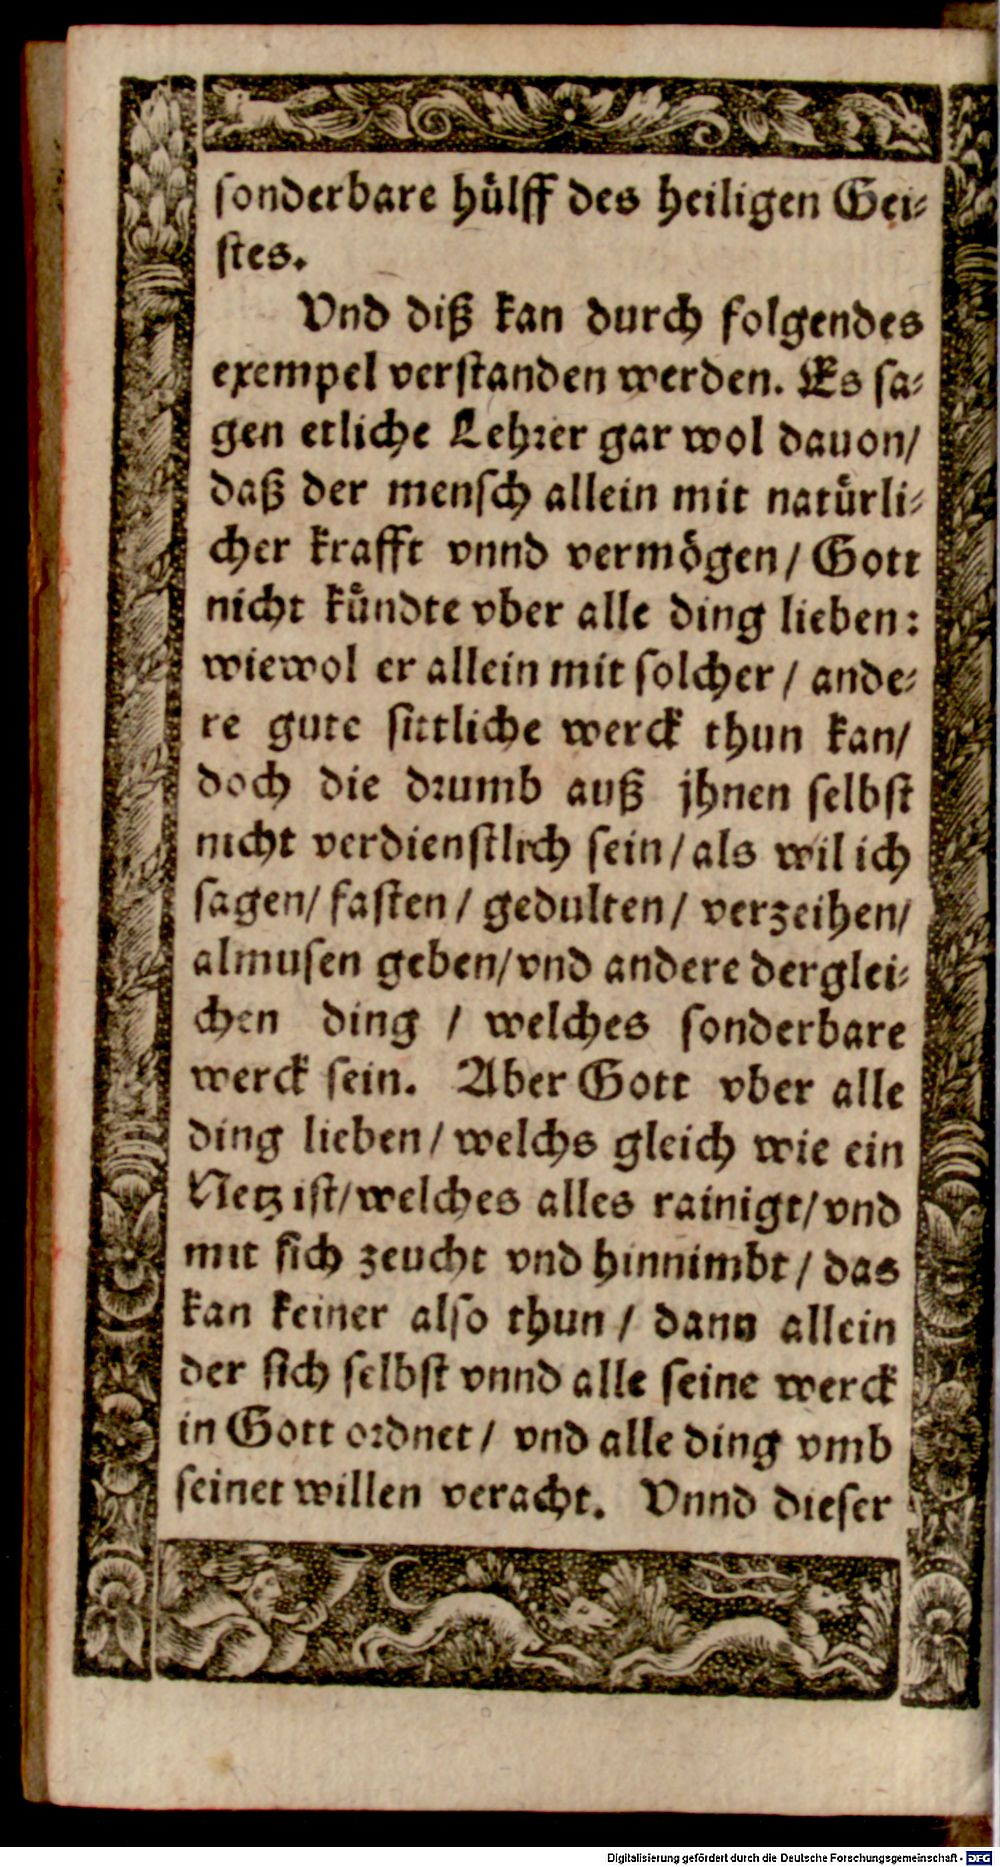 sonderbare hülff des heiligen Gei-
stes.
Vnd diß kan durch folgendes
exempel verstanden werden. Es sa-
gen etliche Lehrer gar wol dauon/
daß der mensch allein mit natürli-
cher krafft vnnd vermögen/ Gott
nicht kündte vber alle ding lieben:
wiewol er allein mit solcher/ ande-
re gute sittliche werck thun kan/
doch die drumb auß jhnen selbst
nicht verdienstlrch sein/ als wil ich
sagen/ fasten/ gedulten/ verzeihen/
almusen geben/ vnd andere derglei-
chen ding / welches sonderbare
werck sein. Aber Gott vber alle
ding lieben/ welchs gleich wie ein
Netz ist/ welches alles rainigt/ vnd
mit sich zeucht vnd hinnimbt/ das
kan keiner also thun/ dann allein
der sich selbst vnnd alle seine werck
in Gott ordnet/ vnd alle ding vmb
seinet willen veracht. Vnnd dieser
Digitalisierung gefördert durch die Deutsche Forschungsgemeinschaft - DFG